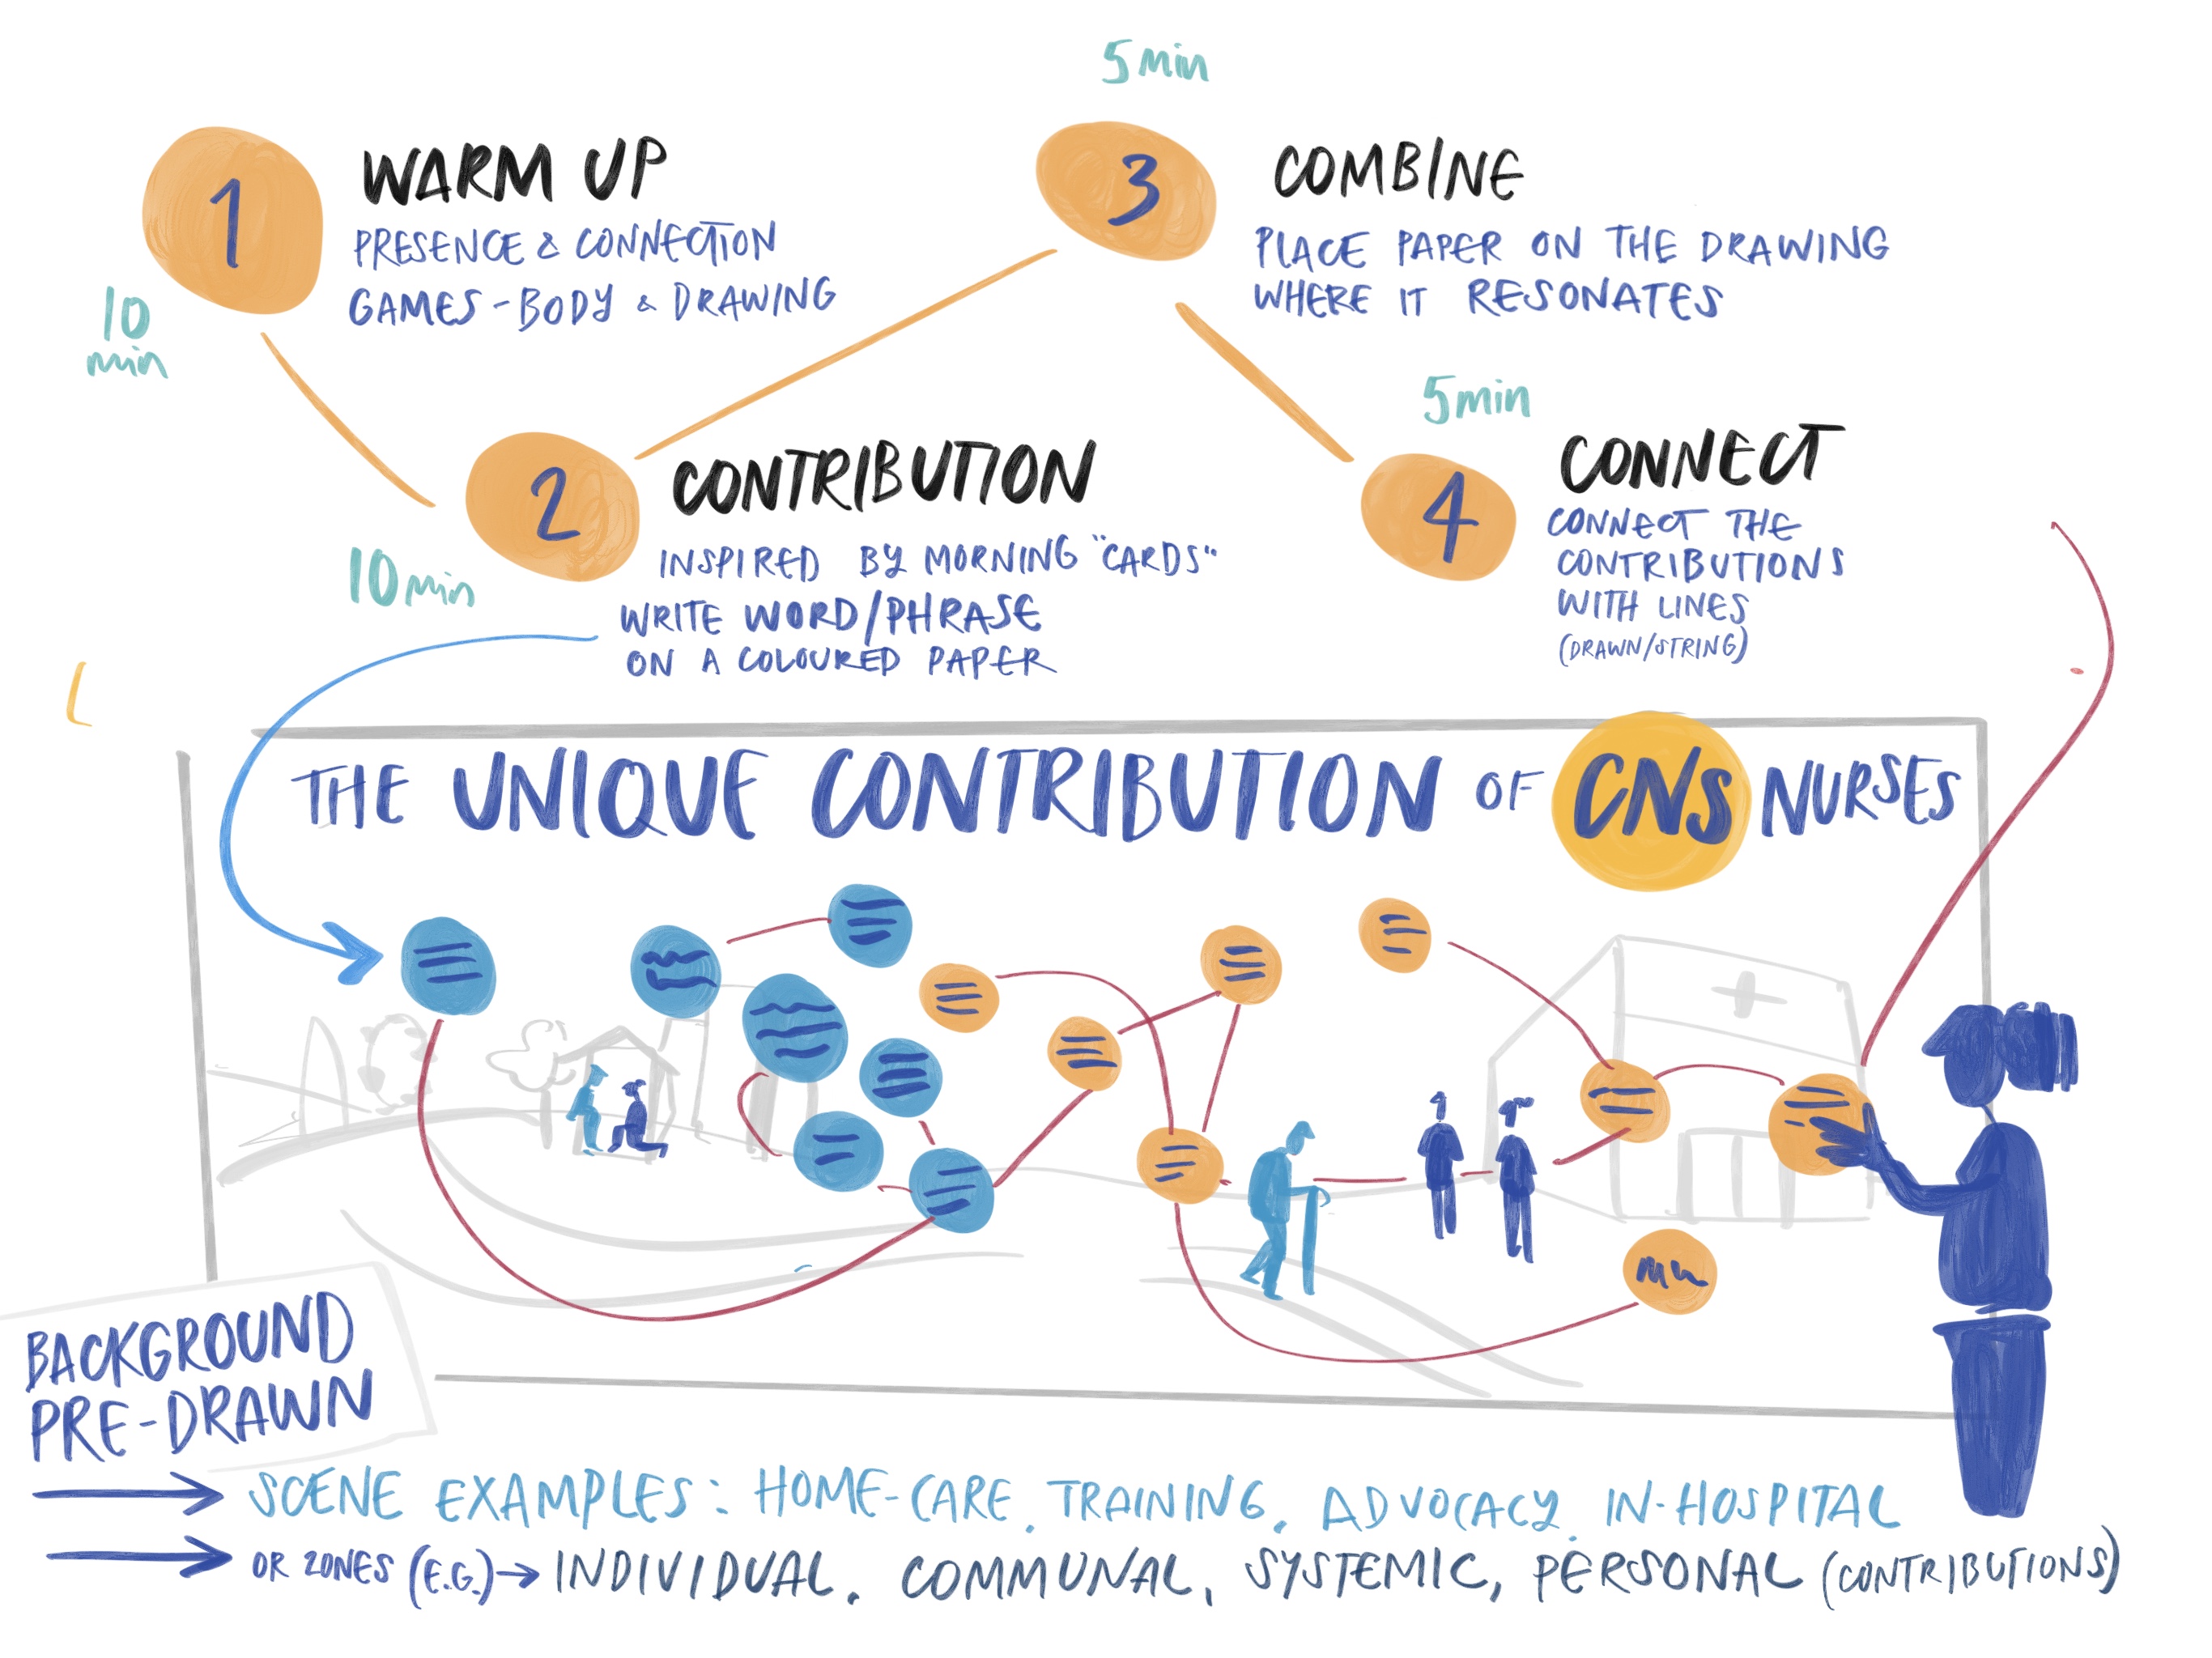 10
min
1
WARM UP
PRESENCE & CONNECTION
GAMES - BODY & DRAWING
10 min
2
CONTRIBUTION
INSPIRED BY MORNING "CARDS"
WRITE WORD/PHRASE
ON A COLOURED PAPER
5 min
3
COMBINE
PLACE PAPER ON THE DRAWING
WHERE IT RESONATES
5 min
4
CONNECT
CONNECT THE
CONTRIBUTIONS
WITH LINES
(DRAWN/STRING)
THE UNIQUE CONTRIBUTION OF CNS NURSES
BACKGROUND
PRE-DRAWN
SCENE EXAMPLES: HOME-CARE, TRAINING, ADVOCACY, IN-HOSPITAL
OR ZONES (E.G.) → INDIVIDUAL, COMMUNAL, SYSTEMIC, PERSONAL (CONTRIBUTIONS)